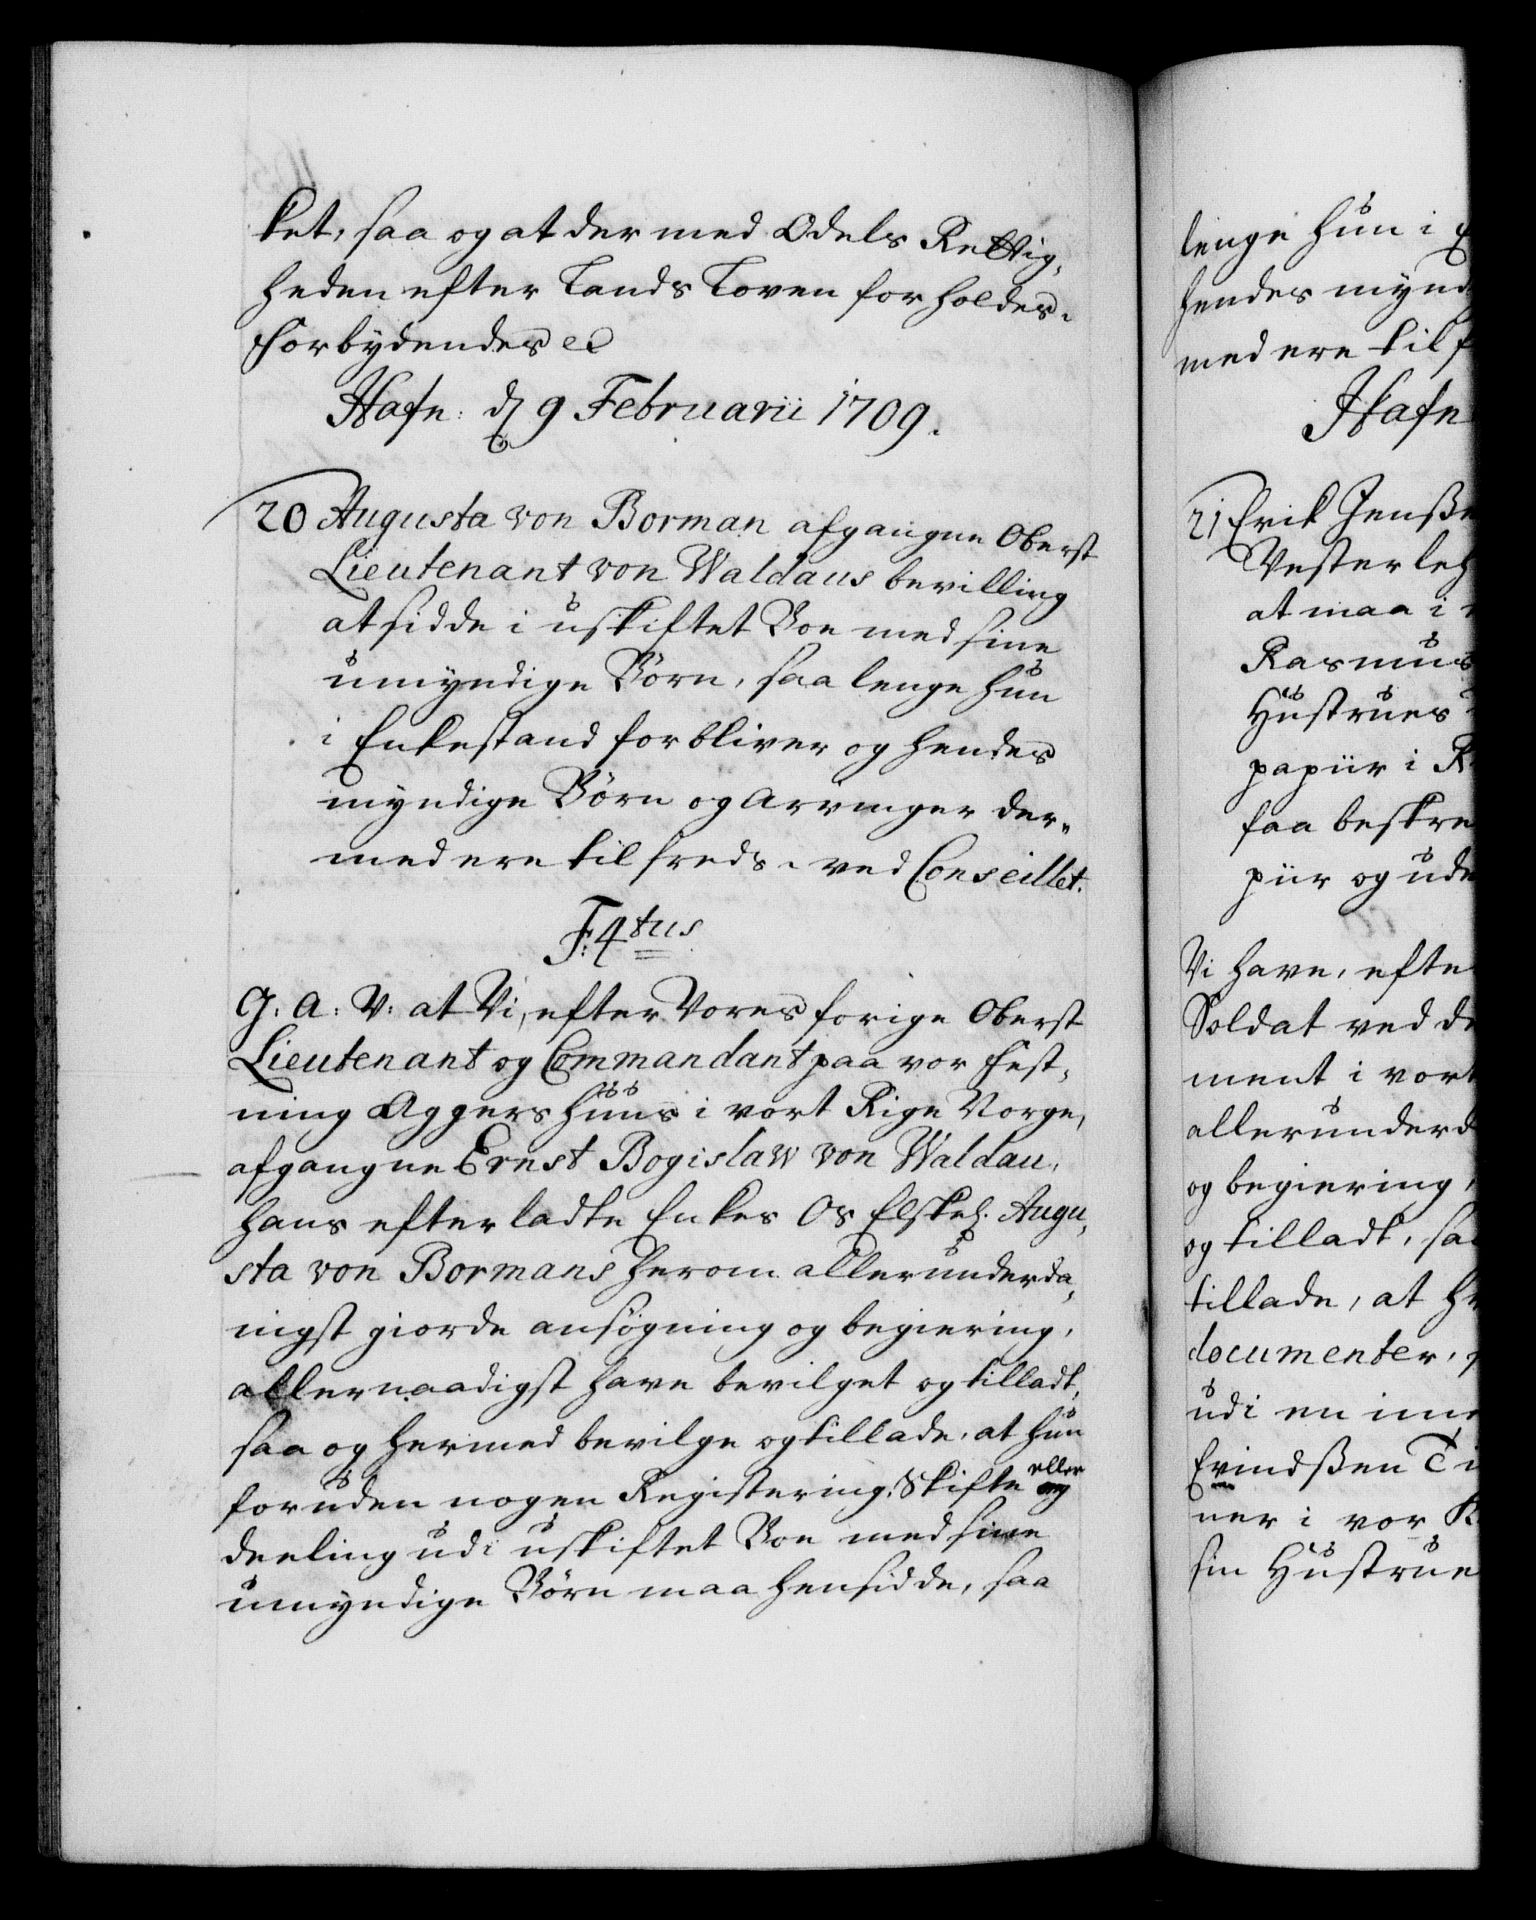 ket, saa og at der med Odels Rettig,
heden efter Lands Loven forholdes.
Forbydendes etc
Hafn: d 9 Februarii 1709.
20 Augusta von Borman afgangne Oberst
Lieutenant von Waldaus bevilling
at sidde i uskiftet Boe med sine
umyndige Börn, saa lenge hun
i Enkestand forbliver og hendes
myndige Börn og Arvinger der„
med ere tilfreds. ved Conseillet.
F: 4tus
G: A: V: at Vi, efter Vores forige Oberst
Lieutenant og Commandant paa vor Fest,
ning Aggershuus i vort Rige Norge,
afgangne Ernst Bogislaw von Waldau,
hans efterladte Enkes Os Elskel. Augu,
sta von Bormans herom allerunderda,
nigst giorde ansøgning og begiering,
allernaadigst have bevilget og tilladt,
saa og hermed bevilge og tillade, at hun
foruden nogen Registering, Skifte eller
deeling udi uskiftet Boe med sine
umyndige Börn maa hensidde, saa
lenge hun i
hendes mynd
med ere tilf
Hafn
21 Erik Jenßen
Vesterleh
at maa i
Rasmus
Hustrues
papiir i R
faa beskre
piir og ude
Vi have, efte
Soldat ved de
ment i vort
allerunderd
og begiering,
og tilladt, saa
tillade, at h
documenter,
udi en im
Evindßen Ti
ner i vor K
sin Hustrue